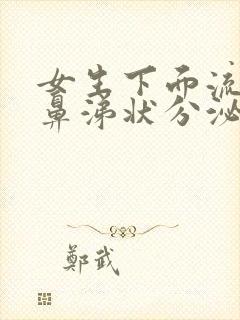 女生下面流
鼻涕状分泌
鄭武